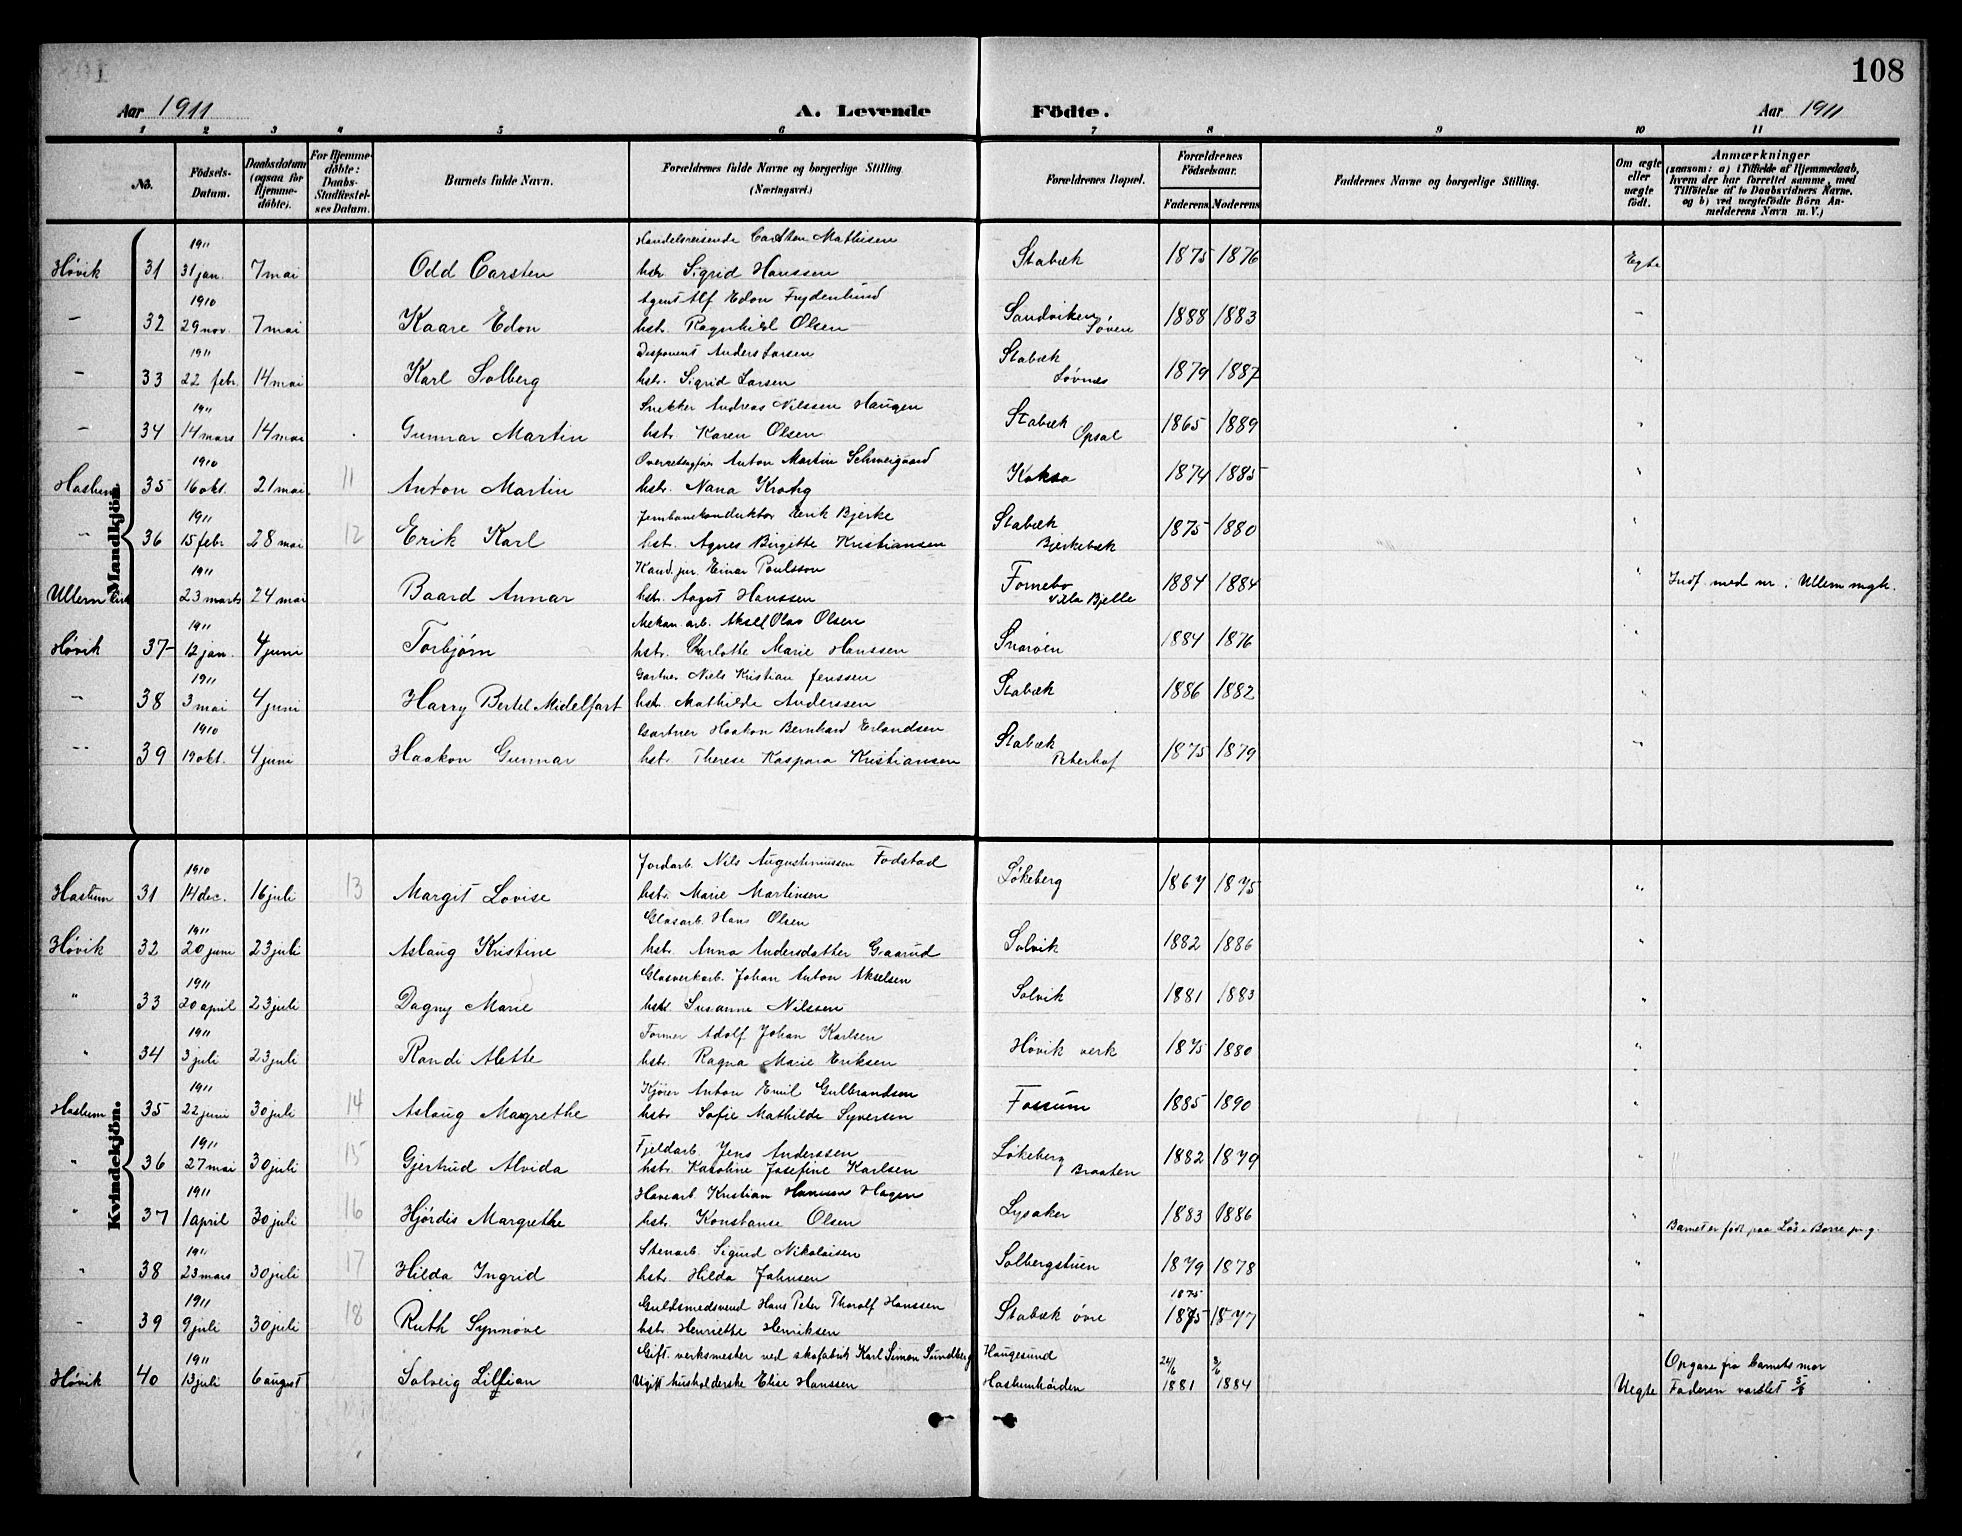 108
Aar 1911 A. Levende Födte. Aar 1911
1 2 3 4 5 6 7 8 9 10 11
No. Födsels-Datum. Daabsdatum (ogsaa for Hjemme-döbte). For Hjemme-döbte: Daabs-Stadfæstel-ses Datum. Barnets fulde Navn. Forældrenes fulde Navne og borgerlige Stilling (Næringsvei.) Forældrenes Bopæl. Forældrenes Födselsaar. Faderens Moderens Faddernes Navne og borgerlige Stilling. Om ægte eller uægte födt. Anmærkninger (saasom: a) i Tilfælde af Hjemmedaab, hvem der har forrettet samme, med Tilföielse af to Daabsvidners Navne. og b) ved uægtefödte Börn An-melderens Navn m. V.)
Mandkjön.
1911 Handelsreisende Carsten Mathisen
Høvik 31 31 jan. 7 mai Odd Carsten hstr. Sigrid Hanssen Stabæk 1875 1876 Egte
1910 Agent Alf Edon Frydenlund
– 32 29 nov. 7 mai Kaare Edon hstr. Ragnhild Olsen Sandviken Løven 1888 1883 –
1911 Disponent Anders Larsen
– 33 22 febr. 14 mai Karl Solberg hstr. Sigrid Larsen Stabæk Løvnes 1879 1887 "
1911 Snekker Andreas Nilssen Haugen
– 34 14 mars 14 mai Gunnar Martin hstr. Karen Olsen Stabæk Opsal 1865 1889 "
1910 Anton Martin Schweigaard
Haslum 35 16 okt. 21 mai 11 Anton Martin hstr. Nana Krohg 1874 1885 "
1911 Jernbanekonduktør Erik Bjerke
" 36 15 febr. 28 mai 12 Erik Karl hstr. Agnes Birgitte Kristiansen Stabæk Bjerkebæk 1875 1880 "
1911 Kand. jur. Einar Poulsson
Ullern 23 marts 24 mai Baard Annar hstr. Aagot Hanssen Fornebo Villa Bjelle 1884 1884 " Indf. med nr. Ullern
1911 Mekan. arb. Aksel Olav Olsen
Høvik 37 12 jan. 4 juni Torbjørn hstr. Charlotte Marie Hanssen Snarøen 1884 1876 "
1911 Gartner Niels Kristian Jenssen
" 38 3 mai 4 juni Harry Bertel Midelfart hstr. Mathilde Anderssen Stabæk 1886 1882 "
1910 Gartner Haakon Bernhard Erlandsen
" 39 19 okt. 4 juni Haakon Gunnar hstr. Therese Kaspara Kristiansen Stabæk Peterhof 1875 1879 "
Kvindekjön.
1910 Jordarb. Nils Augustinussen Fodstad
Haslum 31 14 dec. 16 juli 13 Margit Lovise hstr. Marie Martinsen Løkeberg 1867 1875 "
1911 Glasarb. Hans Olsen
Høvik 32 20 juni 23 juli Aslaug Kristine hstr. Anna Andersdatter Gaarud Solvik 1882 1886 "
1911 Glasverkarb. Johan Anton Akselsen
" 33 20 april 23 juli Dagny Marie hstr. Susanne Nilssen Solvik 1881 1883 "
1911 Former Adolf Johan Karlsen
" 34 3 juli 23 juli Randi Alette hstr. Ragna Marie Eriksen Høvik verk 1875 1880 "
1911 Kjører Anton Emil Gulbrandsen
Haslum 35 22 juni 30 juli 14 Aslaug Magrethe hstr. Sofie Mathilde Syversen Fossum 1885 1890 "
1911 Fjeldarb. Jens Anderssen
" 36 27 mai 30 juli 15 Gjertrud Alvida hstr. Karoline Josefine Karlsen Løkeberg Braaten 1882 1879 "
1911 Havearb. Kristian Hansen Hagen
" 37 1 april 30 juli 16 Hjørdis Margrethe hstr. Konstanse Olsen Lysaker 1883 1886 " Barnet er født paa Borre pr.g.
1911 Stenarb. Sigurd Nikolaisen
" 38 23 mars 30 juli 17 Hilda Ingrid hstr. Hilda Johnsen Solbergstuen 1879 1878 "
1911 Guldsmedsvend Hans Peter Thoralf Hanssen 1875
" 39 9 juli 30 juli 18 Ruth Synnøve hstr. Henriette Henriksen Stabæk øvre 1875 1877 "
1911 Gift. verksmester ved skofabrik Karl Simon Sundberg Haugesund 24/6 3/6 Opgave fra barnets mor
Høvik 40 13 juli 6 august Solveig Lillian Ugift husholderske Elise Hanssen 1881 1884 Uegte Faderen varslet 5/8